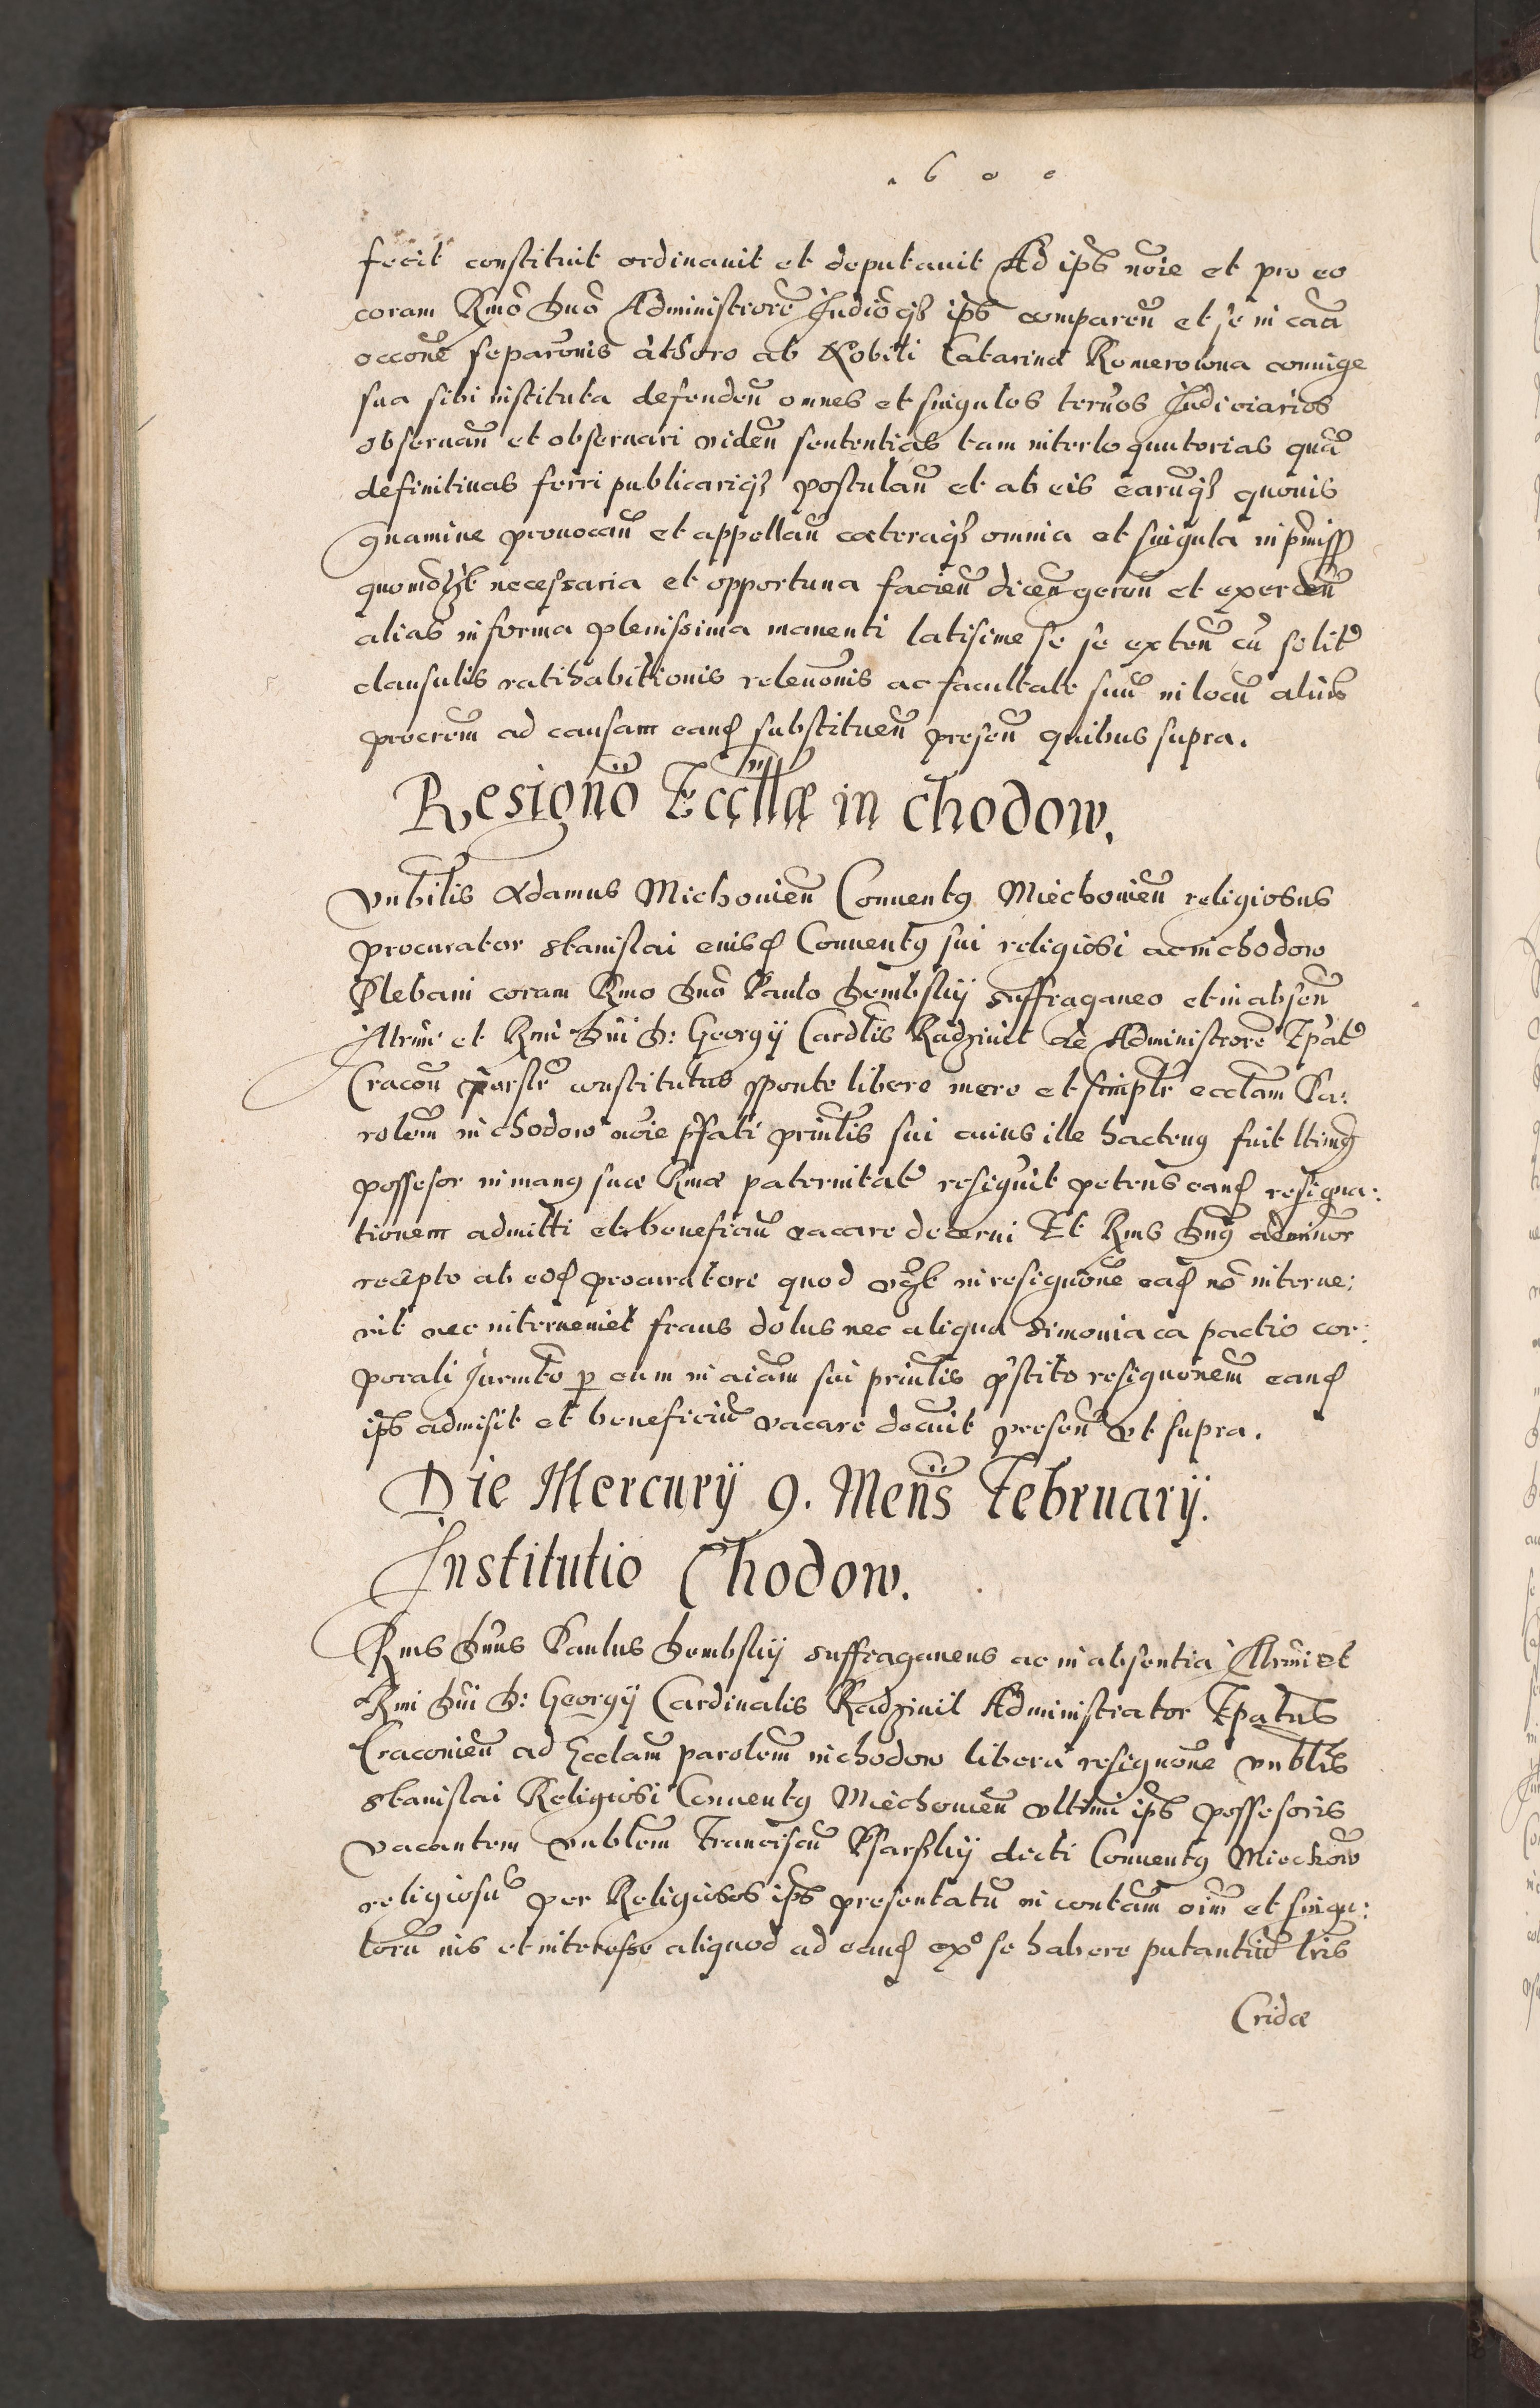 1600
fecit constituit ordinavit et deputavit Ad ips̃ nõie et pro eo
coram Rmõ Dnõ Administrore Judiõq₃ ips̃ comparen̄ et se in caũa
occõne separõnis à thoro ab Nobili Catarina Komerowna coniuge
sua sibi instituta defenden̄ omnes et singulos termõs Judiciarios
observan̄ et observari viden̄ sententias tam interloquutorias quã
definitivas ferri publicariq₃ postulan̄ et ab eis earuq₃ quovis
gravamine provocan̄ et appellan̄ cæteraq₃ omnia et singula in p̃miss
quomõlt necessaria et opportuna facien̄ dicen̄ geren̄ et exercen̄
alias in forma plenissima manenti latisime se se exten̄ cũ solit
clausulis ratihabitionis relevõnis ac facultate suũ in locũ aliũ
procrem ad causam eand̃ substituen̄ presen̄ quibus supra.
Resignõ Ecc̃lliæ in Chodow.
Vnbilis Adamus Michovien̄ Conventꝰ Miechovien̄ religiosus
procurator Stanislai eiusd̃ Conventꝰ sui religiosi ac in Chodow
Plebani coram Rmo Dnõ Paulo Dembskij suffraganeo et in absen̄
Illrmi et Rmi Dñi D: Georgij Cardlis Radzivil &c Administrore Epãt
Cracov̄ parslr constitutus sponte libere mere et simplr ecclam Pa:
rolem in Chodow nõie p̃fati prinlis sui cuius ille hactenꝰ fuit ltimꝰ
possesor in manꝰ suæ Rmæ paternitat resigñit petens eand̃ resigna:
tionem admitti et beneficiũ vacare decerni Et Rms Dnꝰ administror
recepto ab eod̃ procuratore quod in resignõne ead̃ nõ interve:
nit nec interveniet fraus dolus nec aliqua simoniaca pactio cor:
porali Jurmto ꝑ eum in aiam sui prinlis p̃stito resignõnem eand̃
ips̃ admisit et beneficiũ vacare decrvit presen̄ vt supra.
Die Mercurij 9. Mens̃ Februarij.
Institutio Chodow.
Rms Dnus Paulus Dembskij suffraganeus ac in absentia Illrmi et
Rmi Dñi D: Georgij Cardinalis Radzivil Administrator Epatus
Cracovien̄ ad Ecclam parolem in Chodow libera resignõne vnblis
Stanislai Religiosi Conventꝰ Miechovien̄ vltimi ips̃ possesoris
vacantem vnblem Franciscũ Psarskij dicti Conventꝰ Miechow
religiosũ per Religiosos ips̃ presentatũ in contam oim et singu:
lorũ ius et interesse aliquod ad eand̃ exº se habere putantiũ lris
Cridæ